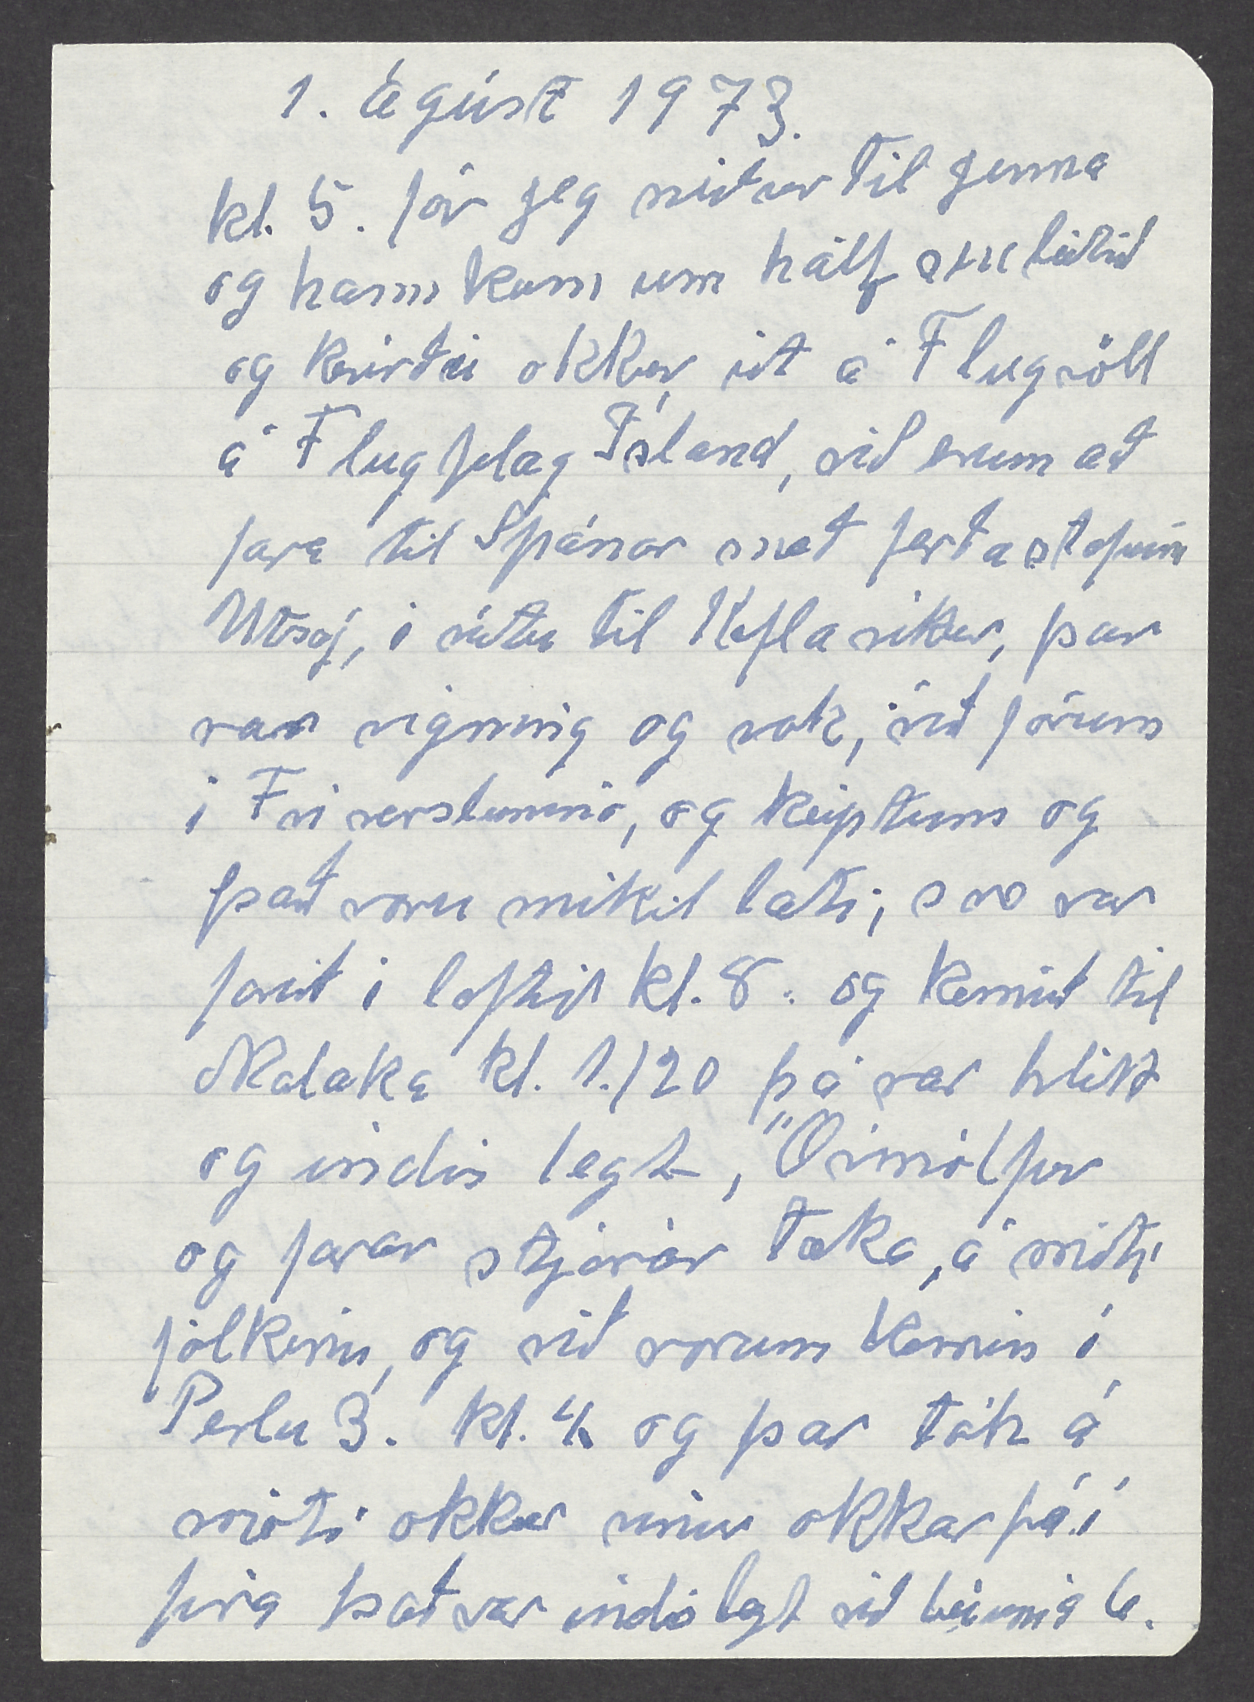 1. águst 1973.
kl. 5. fór jeg niður til Jenna
og hann kom um hálf leitið
og keirði okkur út á Flugvöll
á Flugfelag Ísland, við erum að
fara til Spánar með ferðastofuni
Utsój, í rútu til Keflavikur, þar
var rigning og rok, við fórum
í Friverslunina, og keiptum og
það voru mikil læti, svo var
farið i loftið kl. 8. og komið til
Malaka kl. 1.120 þá var hlitt
og indis legt, "Örnólfur
og farar stjórar taka, á móti
fólkinu, og við vorum komin í
Perlu 3. kl. 4 og þar tók á
móti okkur vinur okkar frá í
fira það var indislegt við